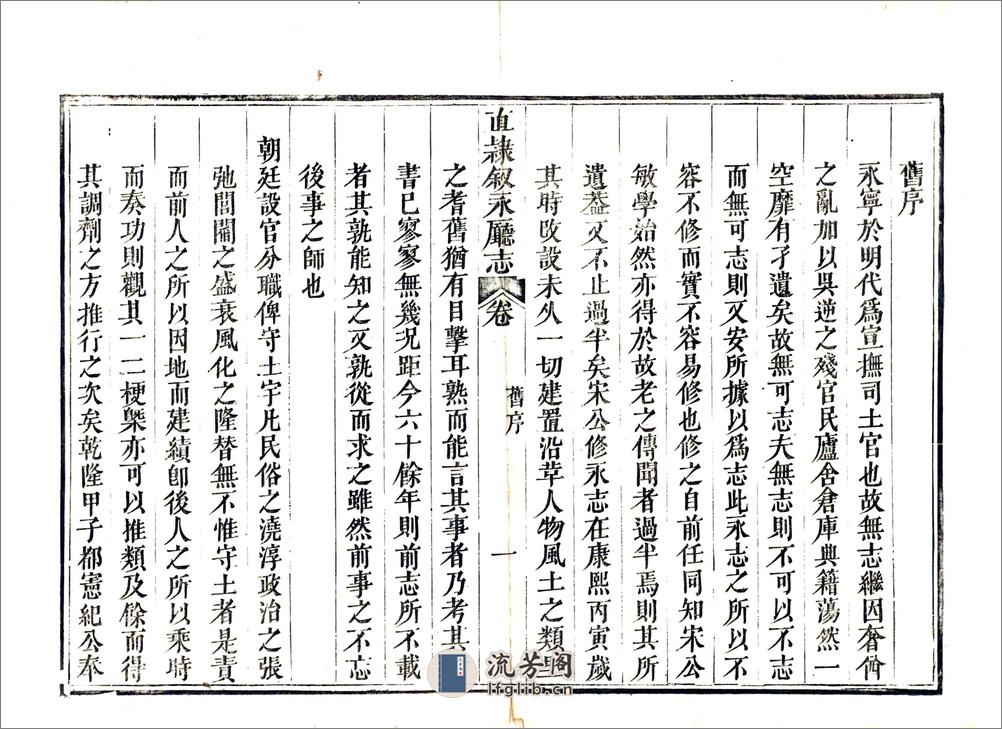 舊序
永寧於明代爲宣撫司土官也故無志繼因奢酋
之亂加以吳逆之殘官民廬舍倉庫典籍蕩然一
空靡有孑遺矣故無可志夫無志則不可以不志
而無可志則又安所據以爲志此永志之所以不
容不修而實不容易修也修之自前任同知宋公
敏學始然亦得於故老之傳聞者過半焉則其所
遺葢又不止過半矣宋公修永志在康熙丙寅歲
其時改設未久一切建置沿革人物風土之類
直隸叙永廳志
卷
舊序
一
之耆舊猶有目擊耳熟而能言其事者乃考其
書已寥寥無幾況距今六十餘年則前志所不載
者其孰能知之又孰從而求之雖然前事之不忘
後事之師也
朝廷設官分職俾守土宇凡民俗之澆淳政治之張
弛閭閻之盛衰風化之隆替無不惟守土者是責
而前人之所以因地而建績卽後人之所以乘時
而奏功則觀其一二梗槩亦可以推類及餘而得
其調劑之方推行之次矣乾隆甲子都憲紀公奉
流芳阁
lfglib.cn